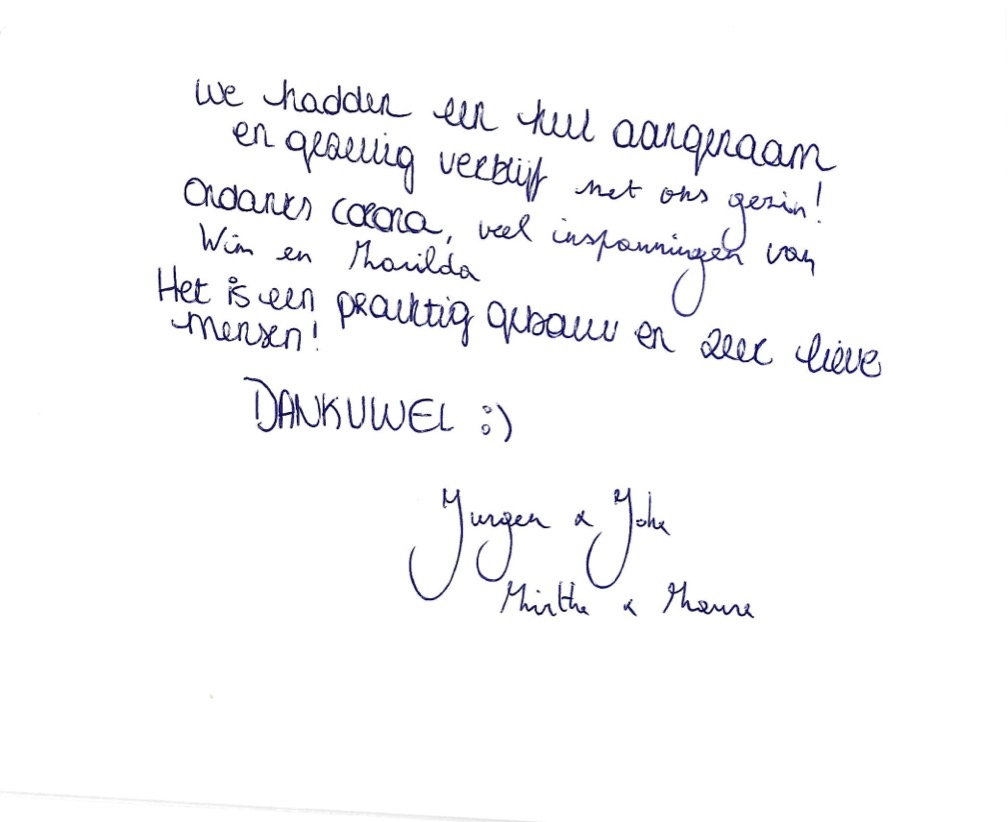 We hadden een heel aangenaam
en gezellig verblijf met ons gezin!
Ondanks corona, veel inspanningen van
Wim en Marilda
Het is een prachtig gebouw en zeer lieve
mensen!
DANKUWEL :)
Jurgen & Joke
Mirthe &